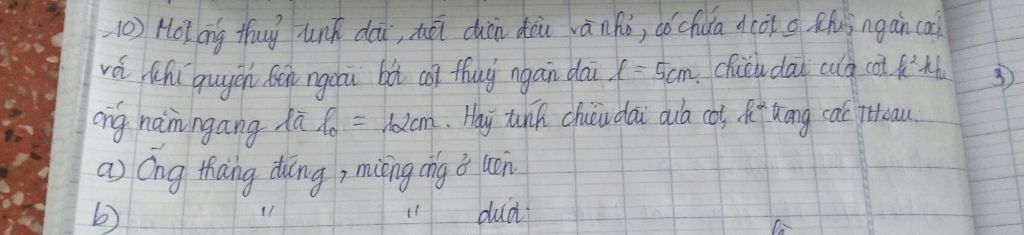 10) Một ống thuỷ tinh dài, tiết diện đều và nhỏ, có chứa 1 cột khí, ngăn cách
với khí quyển bên ngoài bởi cột thuỷ ngân dài l = 5cm. chiều dài của cột k² khi
ống nằm ngang là l₀ = 12cm. Hãy tính chiều dài của cột k² trong các TH sau.
a) Ống thẳng đứng, miệng ống ở trên
b) " " dưới
3)